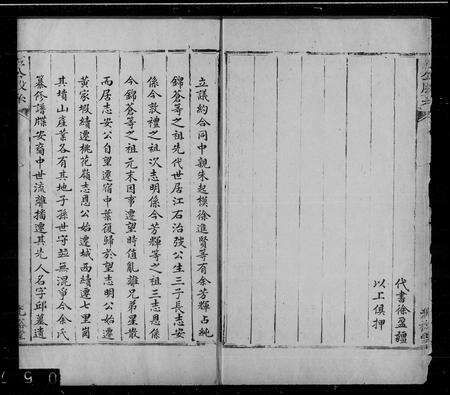 代書徐盈疆
以上俱押
立議約合同中親朱起模徐進賢等有余芳輝占純
錦蒼等之祖先代世居江右治強公生三子長志安
係今敦禮之祖次志明係今芳輝等之祖三志恩係
今錦蒼等之祖元末因事遷望時值亂離兄弟星散
而居志安公自望遷宿中葉復歸於望志明公始遷
黃家塅續遷桃花嶺志恩公始遷城西續遷七里崗
其墳山產業各有其地子孫世守並無混淨今余氏
纂修譜牒安裔中世流離播遷其先人名字邱墓遺
0 5 7